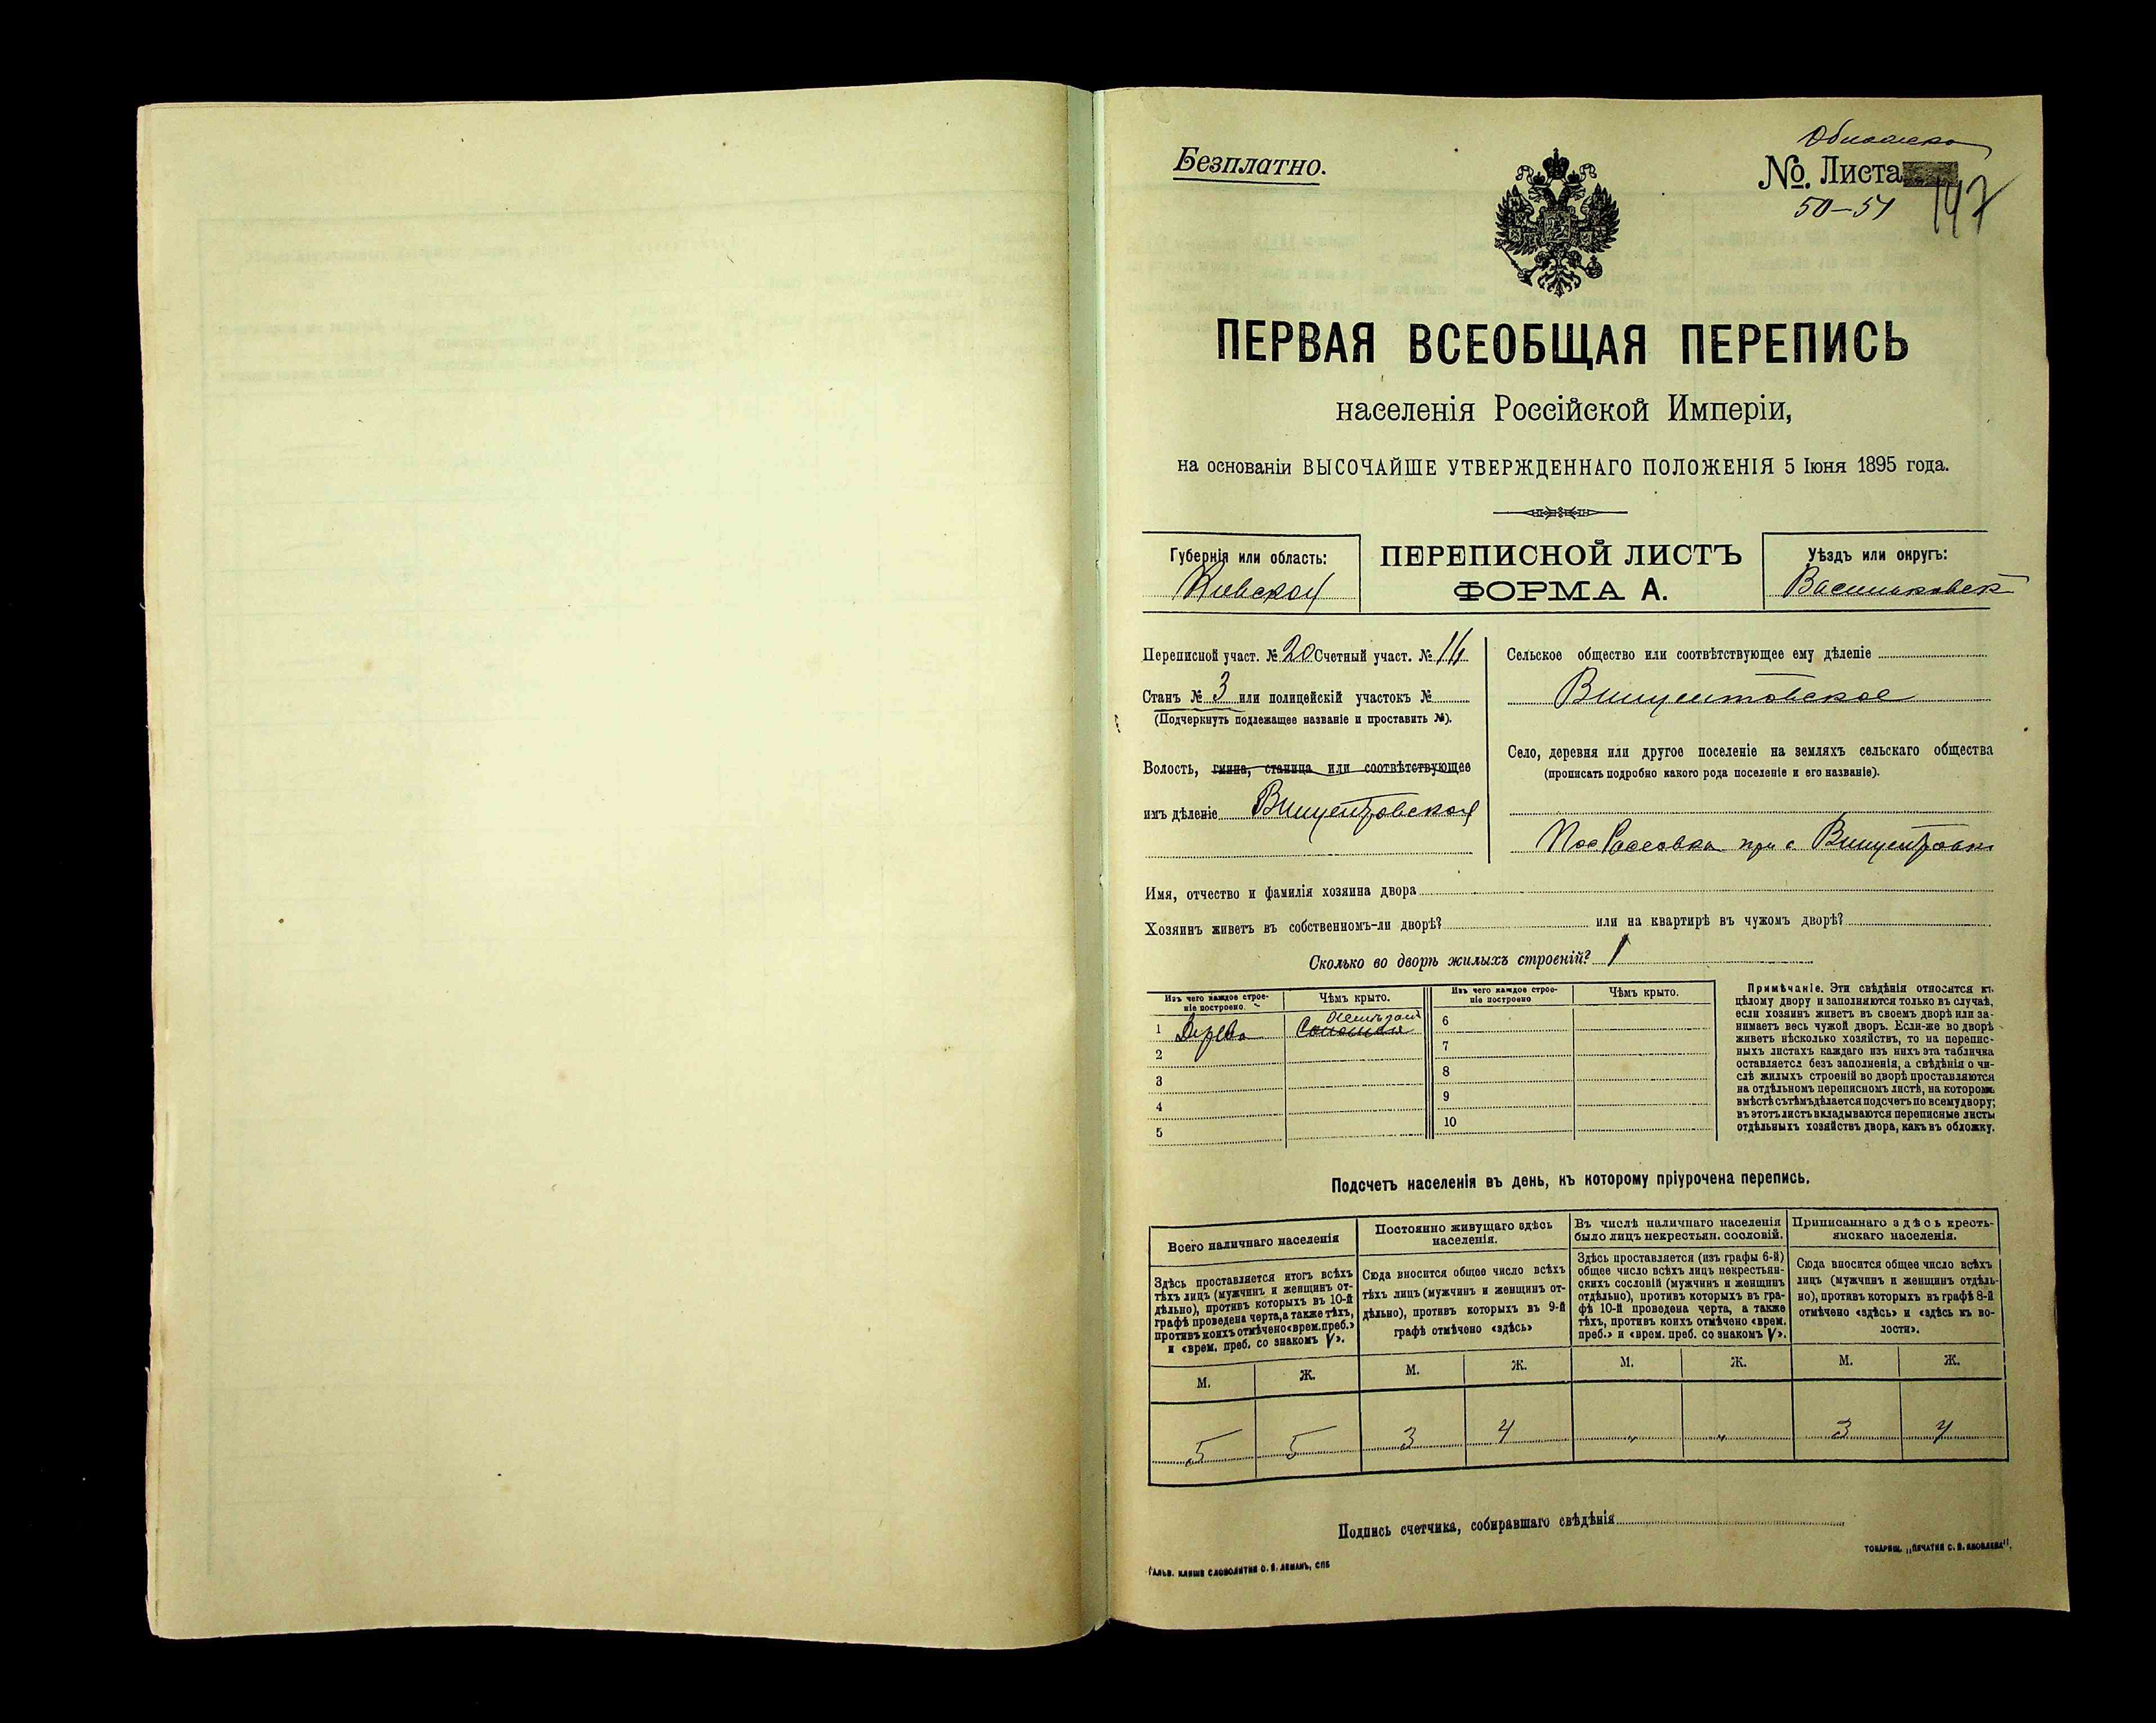 Безплатно.
Обложка
№. Листа
50–51
147
ПЕРВАЯ ВСЕОБЩАЯ ПЕРЕПИСЬ
населенія Россійской Имперіи,
на основаніи ВЫСОЧАЙШЕ УТВЕРЖДЕННАГО ПОЛОЖЕНІЯ 5 Іюня 1895 года.
Губернія или область:
Кіевская
ПЕРЕПИСНОЙ ЛИСТЪ
ФОРМА А.
Уѣздъ или округъ:
Васильковск
Переписной участ. № 20 Счетный участ. № 14
Станъ № 3 или полицейскій участокъ №
(Подчеркнуть подлежащее названіе и проставить №).
Волость, гмина, станица или соотвѣтствующее
имъ дѣленіе Винцентовская
Сельское общество или соотвѣтствующее ему дѣленіе
Винцентовское
Село, деревня или другое поселеніе на земляхъ сельскаго общества
(прописать подробно какого рода поселеніе и его названіе).
Пос при с Винцентовк
Имя, отчество и фамилія хозяина двора
Хозяинъ живетъ въ собственномъ-ли дворѣ? или на квартирѣ въ чужомъ дворѣ?
Сколько во дворѣ жилыхъ строеній? 1
Изъ чего каждое строе-
ніе построено.
Чѣмъ крыто.
1 Дерева
2
3
4
5
Изъ чего каждое строе-
ніе построено
Чѣмъ крыто.
6
7
8
9
10
Примѣчаніе. Эти свѣдѣнія относятся къ
цѣлому двору и заполняются только въ случаѣ,
если хозяинъ живетъ въ своемъ дворѣ или за-
нимаетъ весь чужой дворъ. Если-же во дворѣ
живетъ нѣсколько хозяйствъ, то на перепис-
ныхъ листахъ каждаго изъ нихъ эта табличка
оставляется безъ заполненія, а свѣдѣнія о чи-
слѣ жилыхъ строеній во дворѣ проставляются
на отдѣльномъ переписномъ листѣ, на которомъ
вмѣстѣ съ тѣмъ дѣлается подсчетъ по всему двору;
въ этотъ листъ вкладываются переписные листы
отдѣльныхъ хозяйствъ двора, какъ въ обложку.
Подсчетъ населенія въ день, къ которому пріурочена перепись.
Всего наличнаго населенія
Здѣсь проставляется итогъ всѣхъ
тѣхъ лицъ (мужчинъ и женщинъ от-
дѣльно), противъ которыхъ въ 10-й
графѣ проведена черта, а также тѣхъ,
противъ коихъ отмѣчено «врем. преб.»
и «врем. преб. со знакомъ V».
Постоянно живущаго здѣсь
населенія.
Сюда вносится общее число всѣхъ
тѣхъ лицъ (мужчинъ и женщинъ от-
дѣльно), противъ которыхъ въ 9-й
графѣ отмѣчено «здѣсь»
Въ числѣ наличнаго населенія
было лицъ некрестьян. сословій.
Здѣсь проставляется (изъ графы 6-й)
общее число всѣхъ лицъ некрестьян-
скихъ сословій (мужчинъ и женщинъ
отдѣльно), противъ которыхъ въ гра-
фѣ 10-й проведена черта, а также
тѣхъ, противъ коихъ отмѣчено «врем.
преб.» и «врем. преб. со знакомъ V».
Приписаннаго здѣсь кресть-
янскаго населенія.
Сюда вносится общее число всѣхъ
лицъ (мужчинъ и женщинъ отдѣль-
но), противъ которыхъ въ графѣ 8-й
отмѣчено «здѣсь» и «здѣсь къ во-
лости».
М. Ж. М. Ж. М. Ж. М. Ж.
5 5 3 4 " " 3 4
Подпись счетчика, собиравшаго свѣдѣнія
ГАЛЬВ. КЛИШЕ СЛОВОЛИТНИ О. И. ЛЕМАНЪ, СПБ
ТОВАРИЩ. „ПЕЧАТНЯ С. П. ЯКОВЛЕВА".